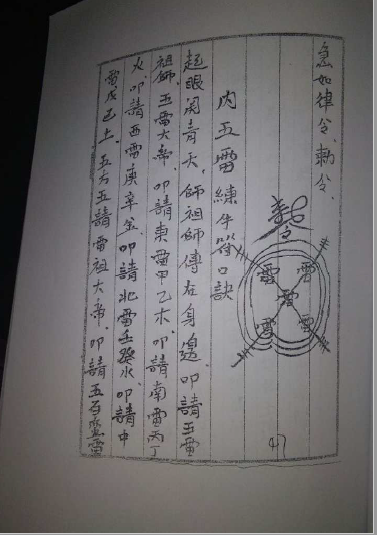 急如律令、勅令、
勅令
雷 雷
雷
雷 雷
47
内五雷練手符口訣
起眼閞青天，師祖師傅在身邊，叩請五雷
祖師、五雷大帝、叩請東雷甲乙木、叩請南雷丙丁
火、叩請西雷庚辛金、叩請北雷壬癸水、叩請中
雷戊己土、五方五請雷祖大帝、叩請五百蠻雷